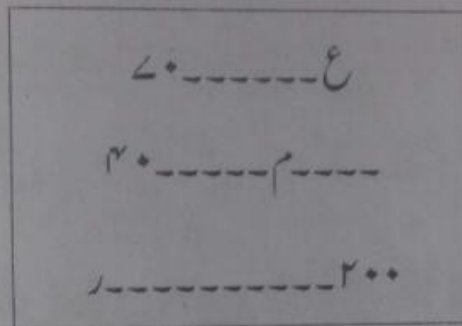 ع------۷۰
----م-----۴۰
۲۰۰----------ر